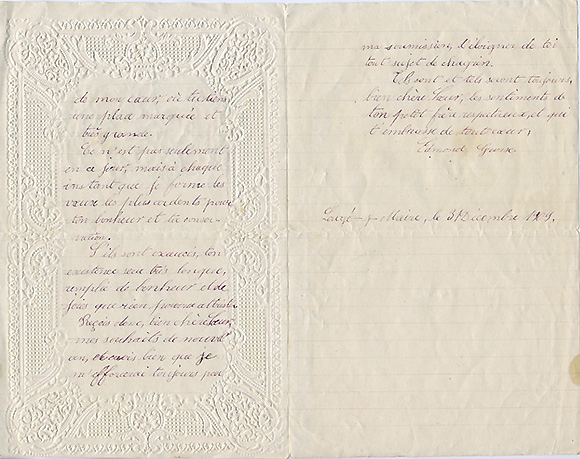 de mon cœur, où tu tiens
une place marquée et
très grande.
Ce n'est pas seulement
en ce jour, mais à chaque
instant que je forme les
vœux les plus ardents pour
ton bonheur et ta conser-
vation.
S'ils sont exaucés, ton
existence sera très longue,
remplie de bonheur et de
joies que rien pourra
Reçois donc, bien chère Sœur,
mes souhaits de nouvel
an, et crois bien que je
m'efforcerai toujours par
ma soumission, d'éloigner de toi
tout sujet de chagrin.
Tels sont et tels seront toujours,
bien chère Sœur, les sentiments de
ton petit frère respectueux, et qui
t'embrasse de tout cœur,
Edmond
le 31 Décembre